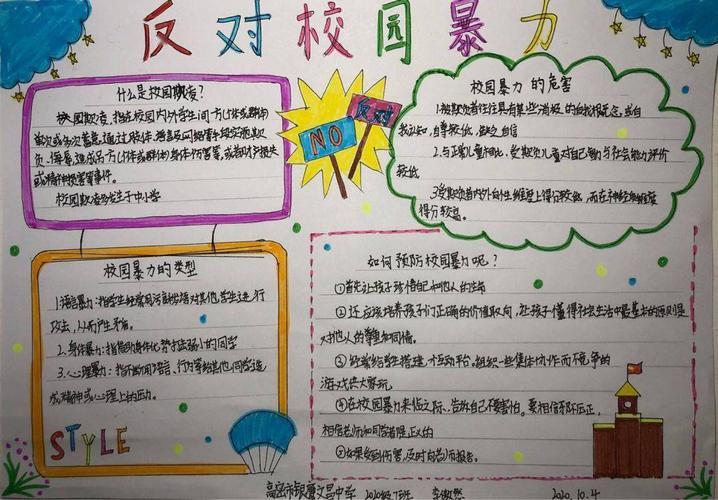 反对校园暴力
什么是校园欺凌?
校园欺凌,指在校园内外学生间一方(个体或群体)
单次或多次蓄意通过肢体、语言及网络等手段实施欺
负、侮辱,造成另一方(个体或群体)身体伤害等,或者财产损失
或精神损害等事件。
校园欺凌多发生于中小学
NO
反对
校园暴力的危害
1.被欺负者往往具有某些消极的自我概念,或自
我认知,自尊较低,缺乏自信
2.与正常儿童相比,受欺负儿童对自己能力与社会能力评价
较低
3.受欺负者内外向性维度上得分较低,而在神经质维度
得分较高。
校园暴力的类型
1.语言暴力:指学生经常用污言秽语对其他学生进行
攻击,从而产生矛盾。
2.身体暴力:指
弱小的同学
3.心理暴力:指不断用语言、行为等给其他同学造
成精神或心理上的压力。
STYLE
如何预防校园暴力呢?
①首先让孩子珍惜自己和他人的生命
②还应该培养孩子们正确的价值取向,让孩子懂得社会生活中最基本的原则是
对他人的尊重和同情。
③
给学生搭建一个互动平台。组织一些集体协作而不竞争的
游戏供大家玩。
④在校园暴力来临之际、告诉自己不要害怕。要相信邪不压正,
相信老师和同学都是正义的
⑤如果受到伤害,及时向老师报告。
高密市银鹰文昌中学
2020级7班
李
2020.10.4